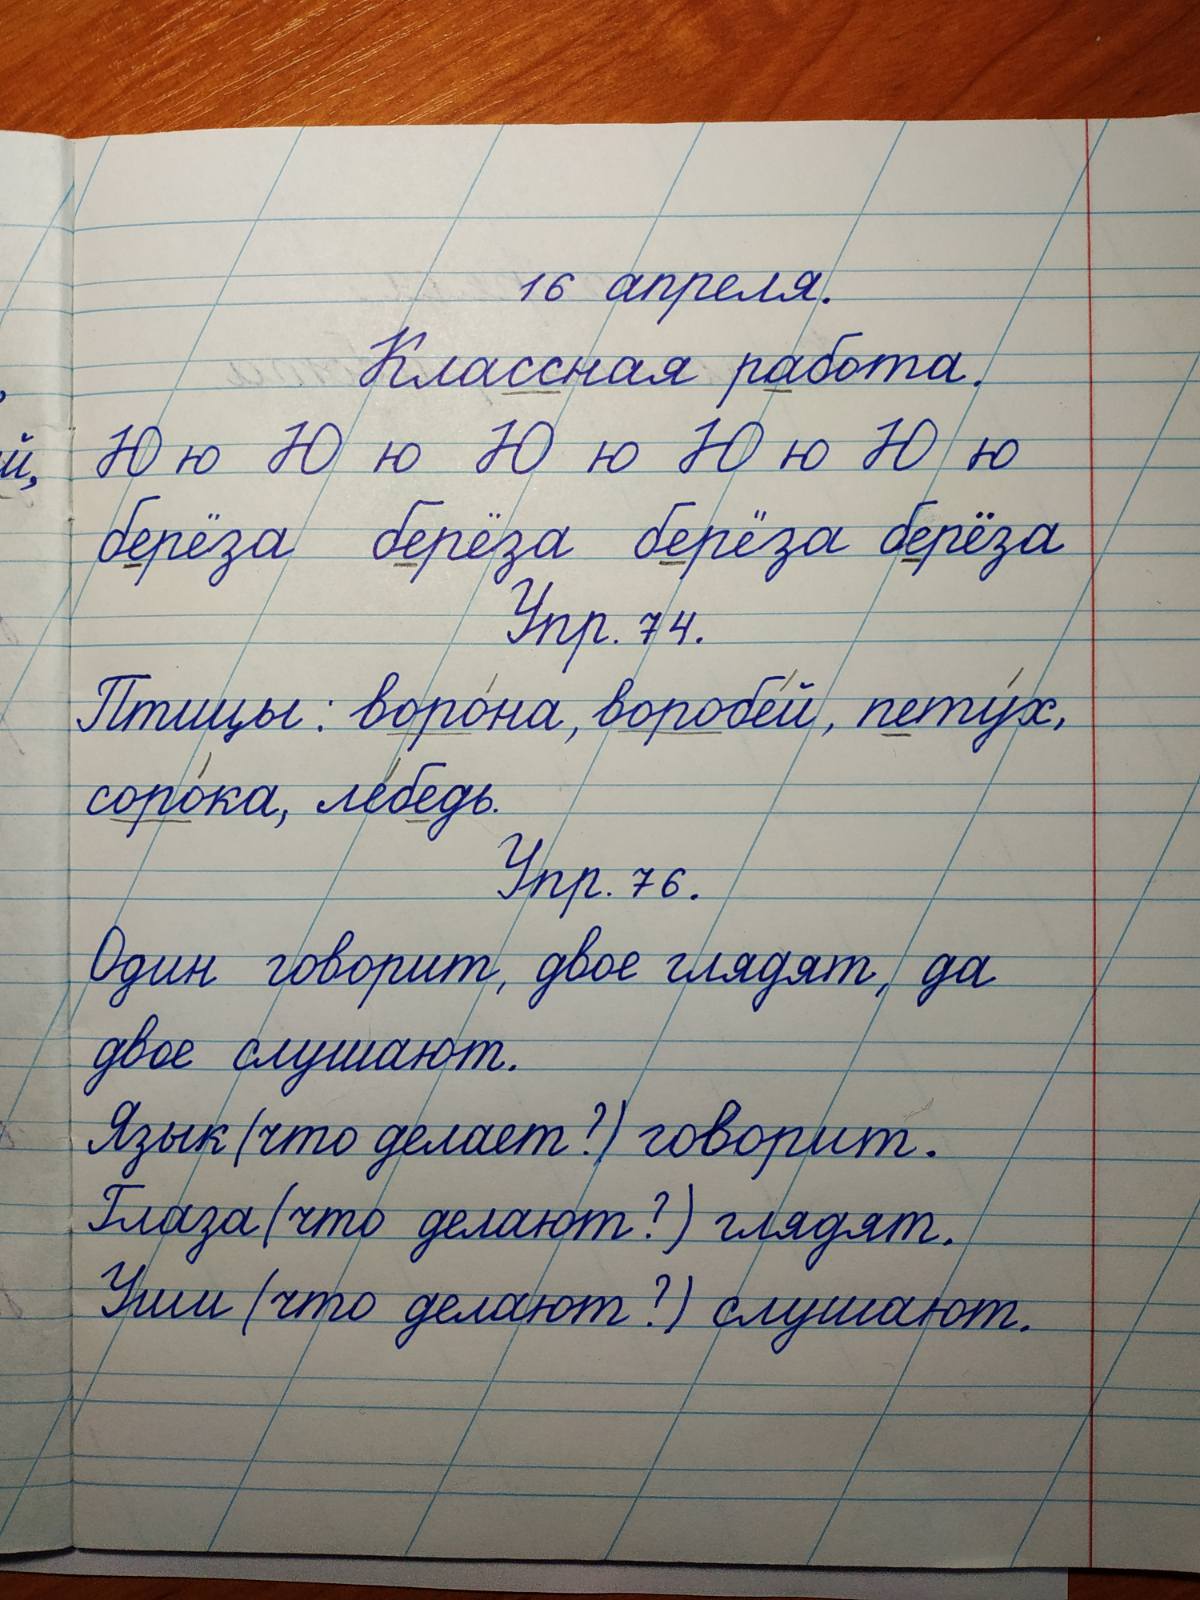 16 апреля.
Классная работа.
Ю ю Ю ю Ю ю Ю ю Ю ю
берёза берёза берёза берёза
Упр. 74.
Птицы: воро́на, воробе́й, пету́х,
соро́ка, ле́бедь.
Упр. 76.
Один говорит, двое глядят, да
двое слушают.
Язык (что делает?) говорит.
Глаза (что делают?) глядят.
Уши (что делают?) слушают.